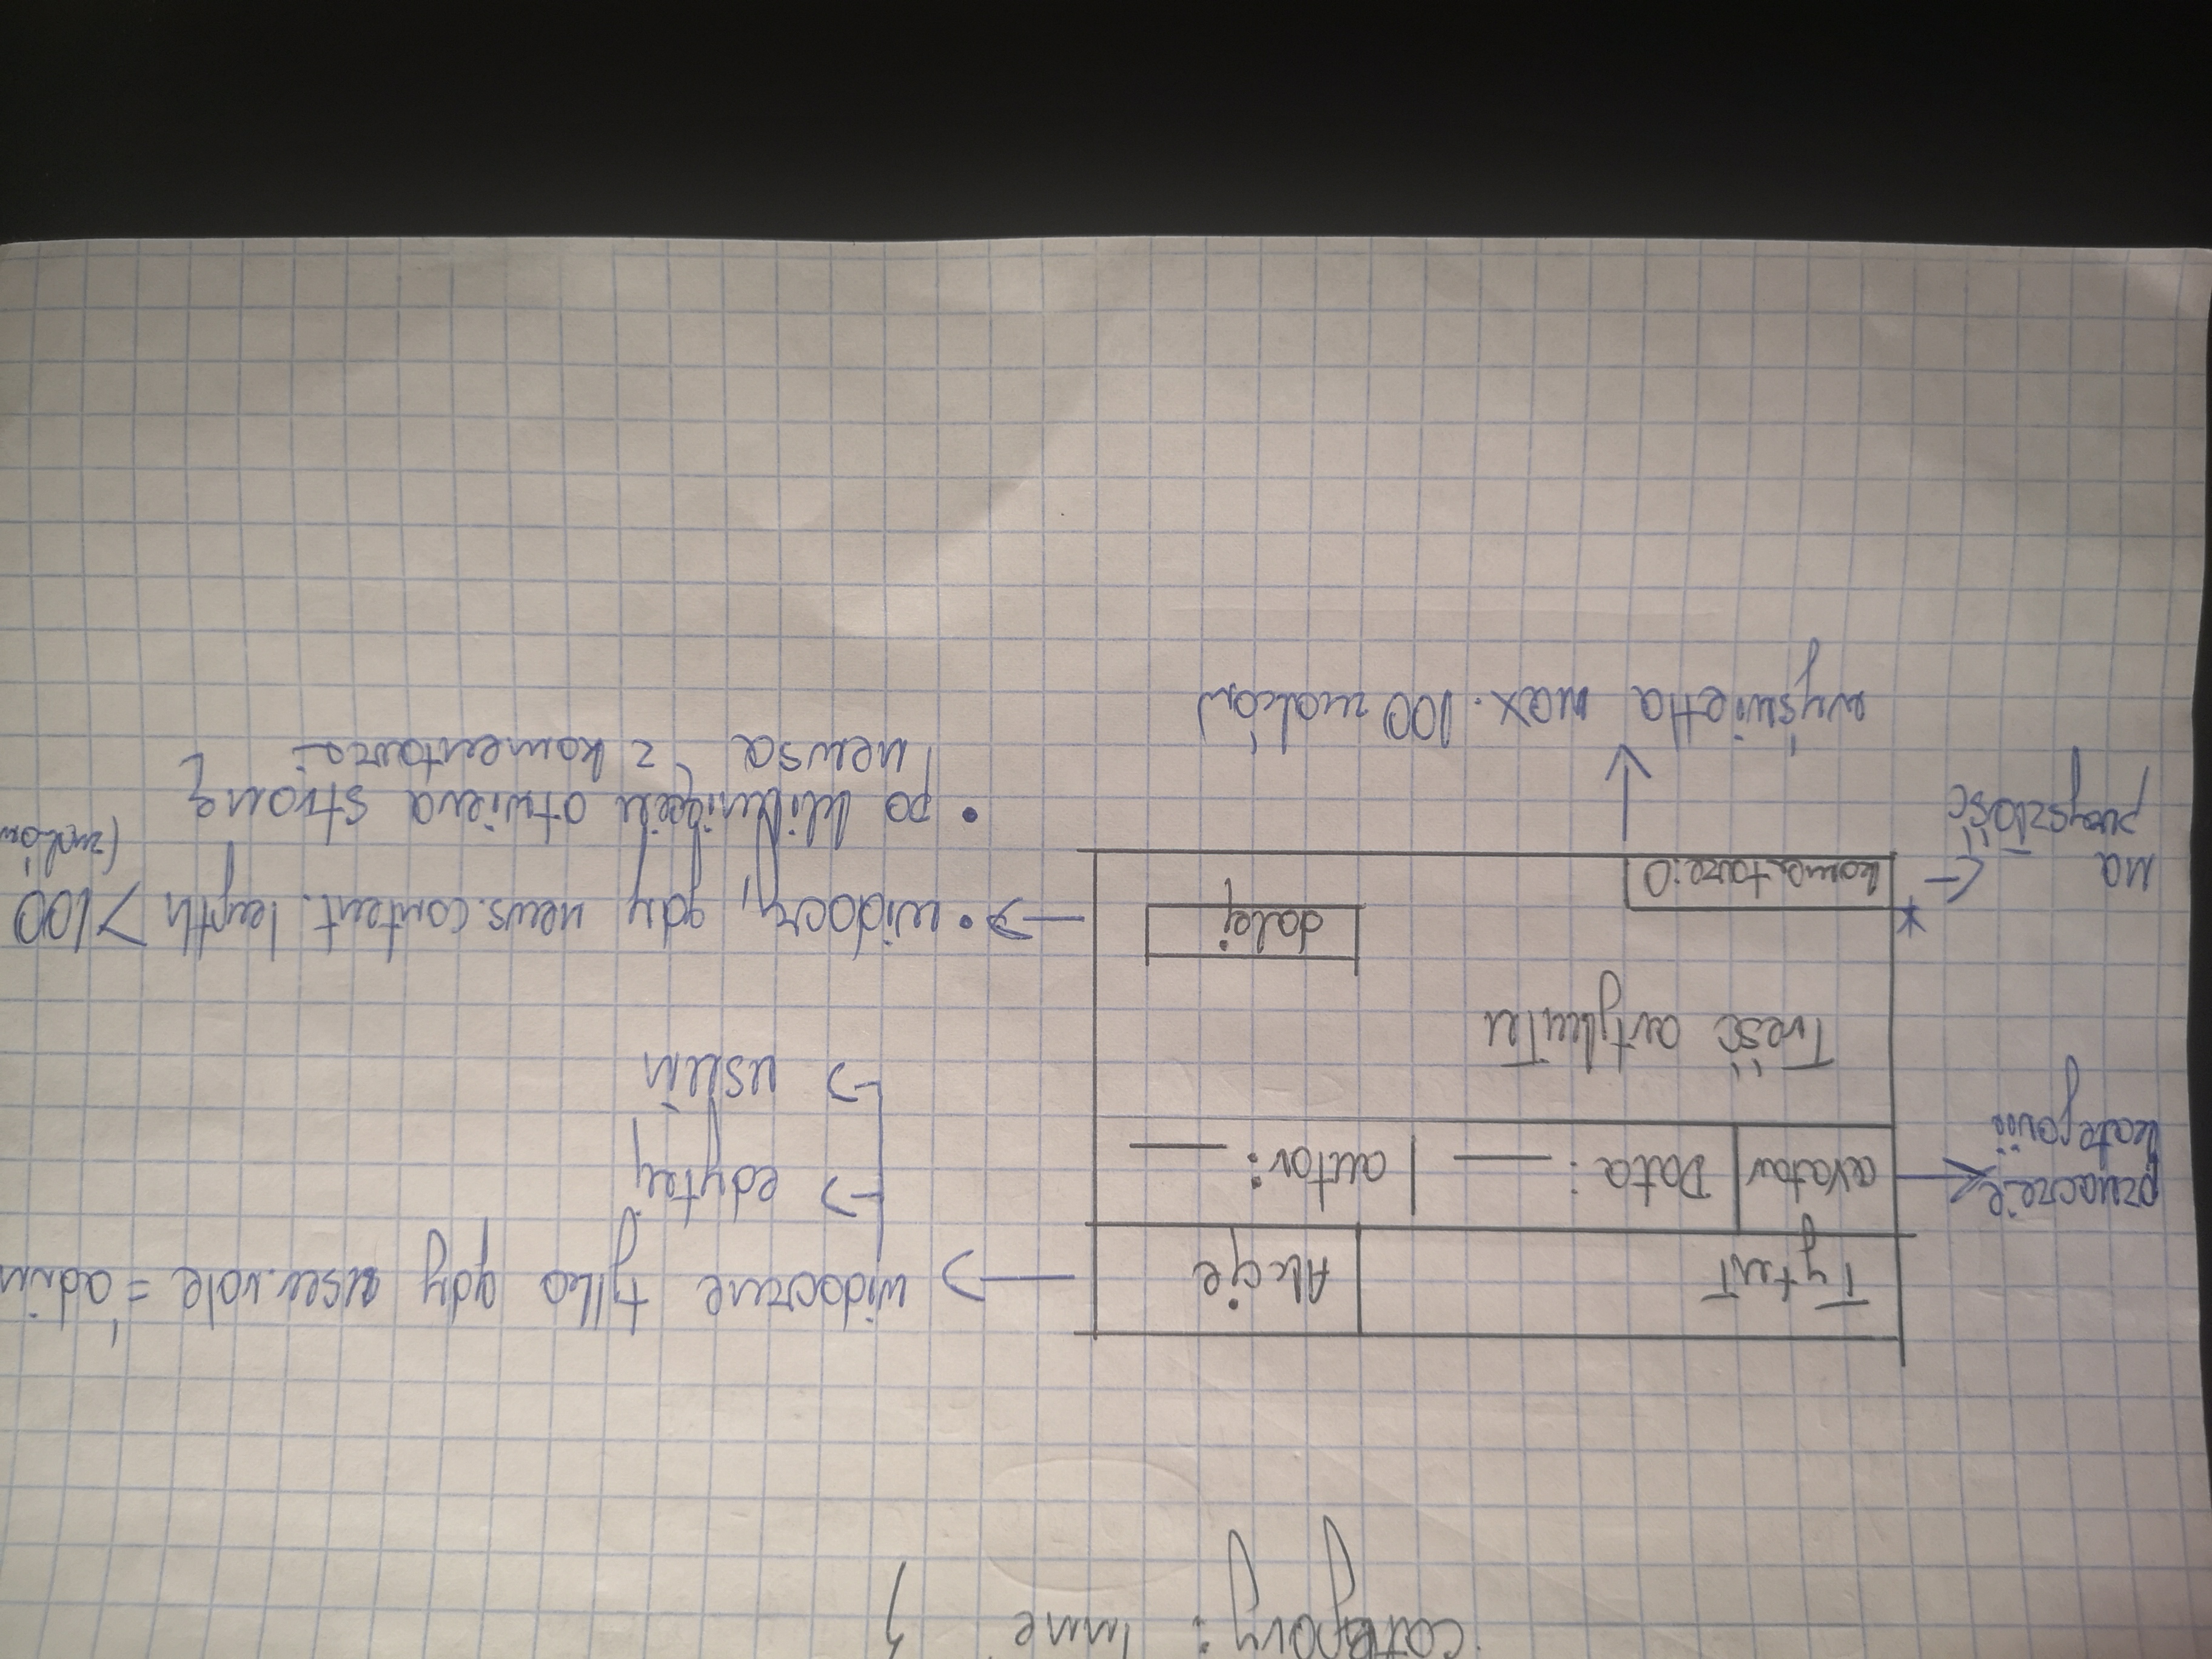 category: Inne }
Tytuł
Akcje
widoczne tylko gdy user.role = 'admin
edytuj
usuń
kategorii
avatar
Data: ___
autor: ___
Treść artykułu
dalej
• widoczny, gdy news.content.length > 100
(znaków
• po kliknięciu otwiera stronę
newsa z komentarza
*
komentarze: 0
na
przyszłość
wyświetla max. 100 znaków